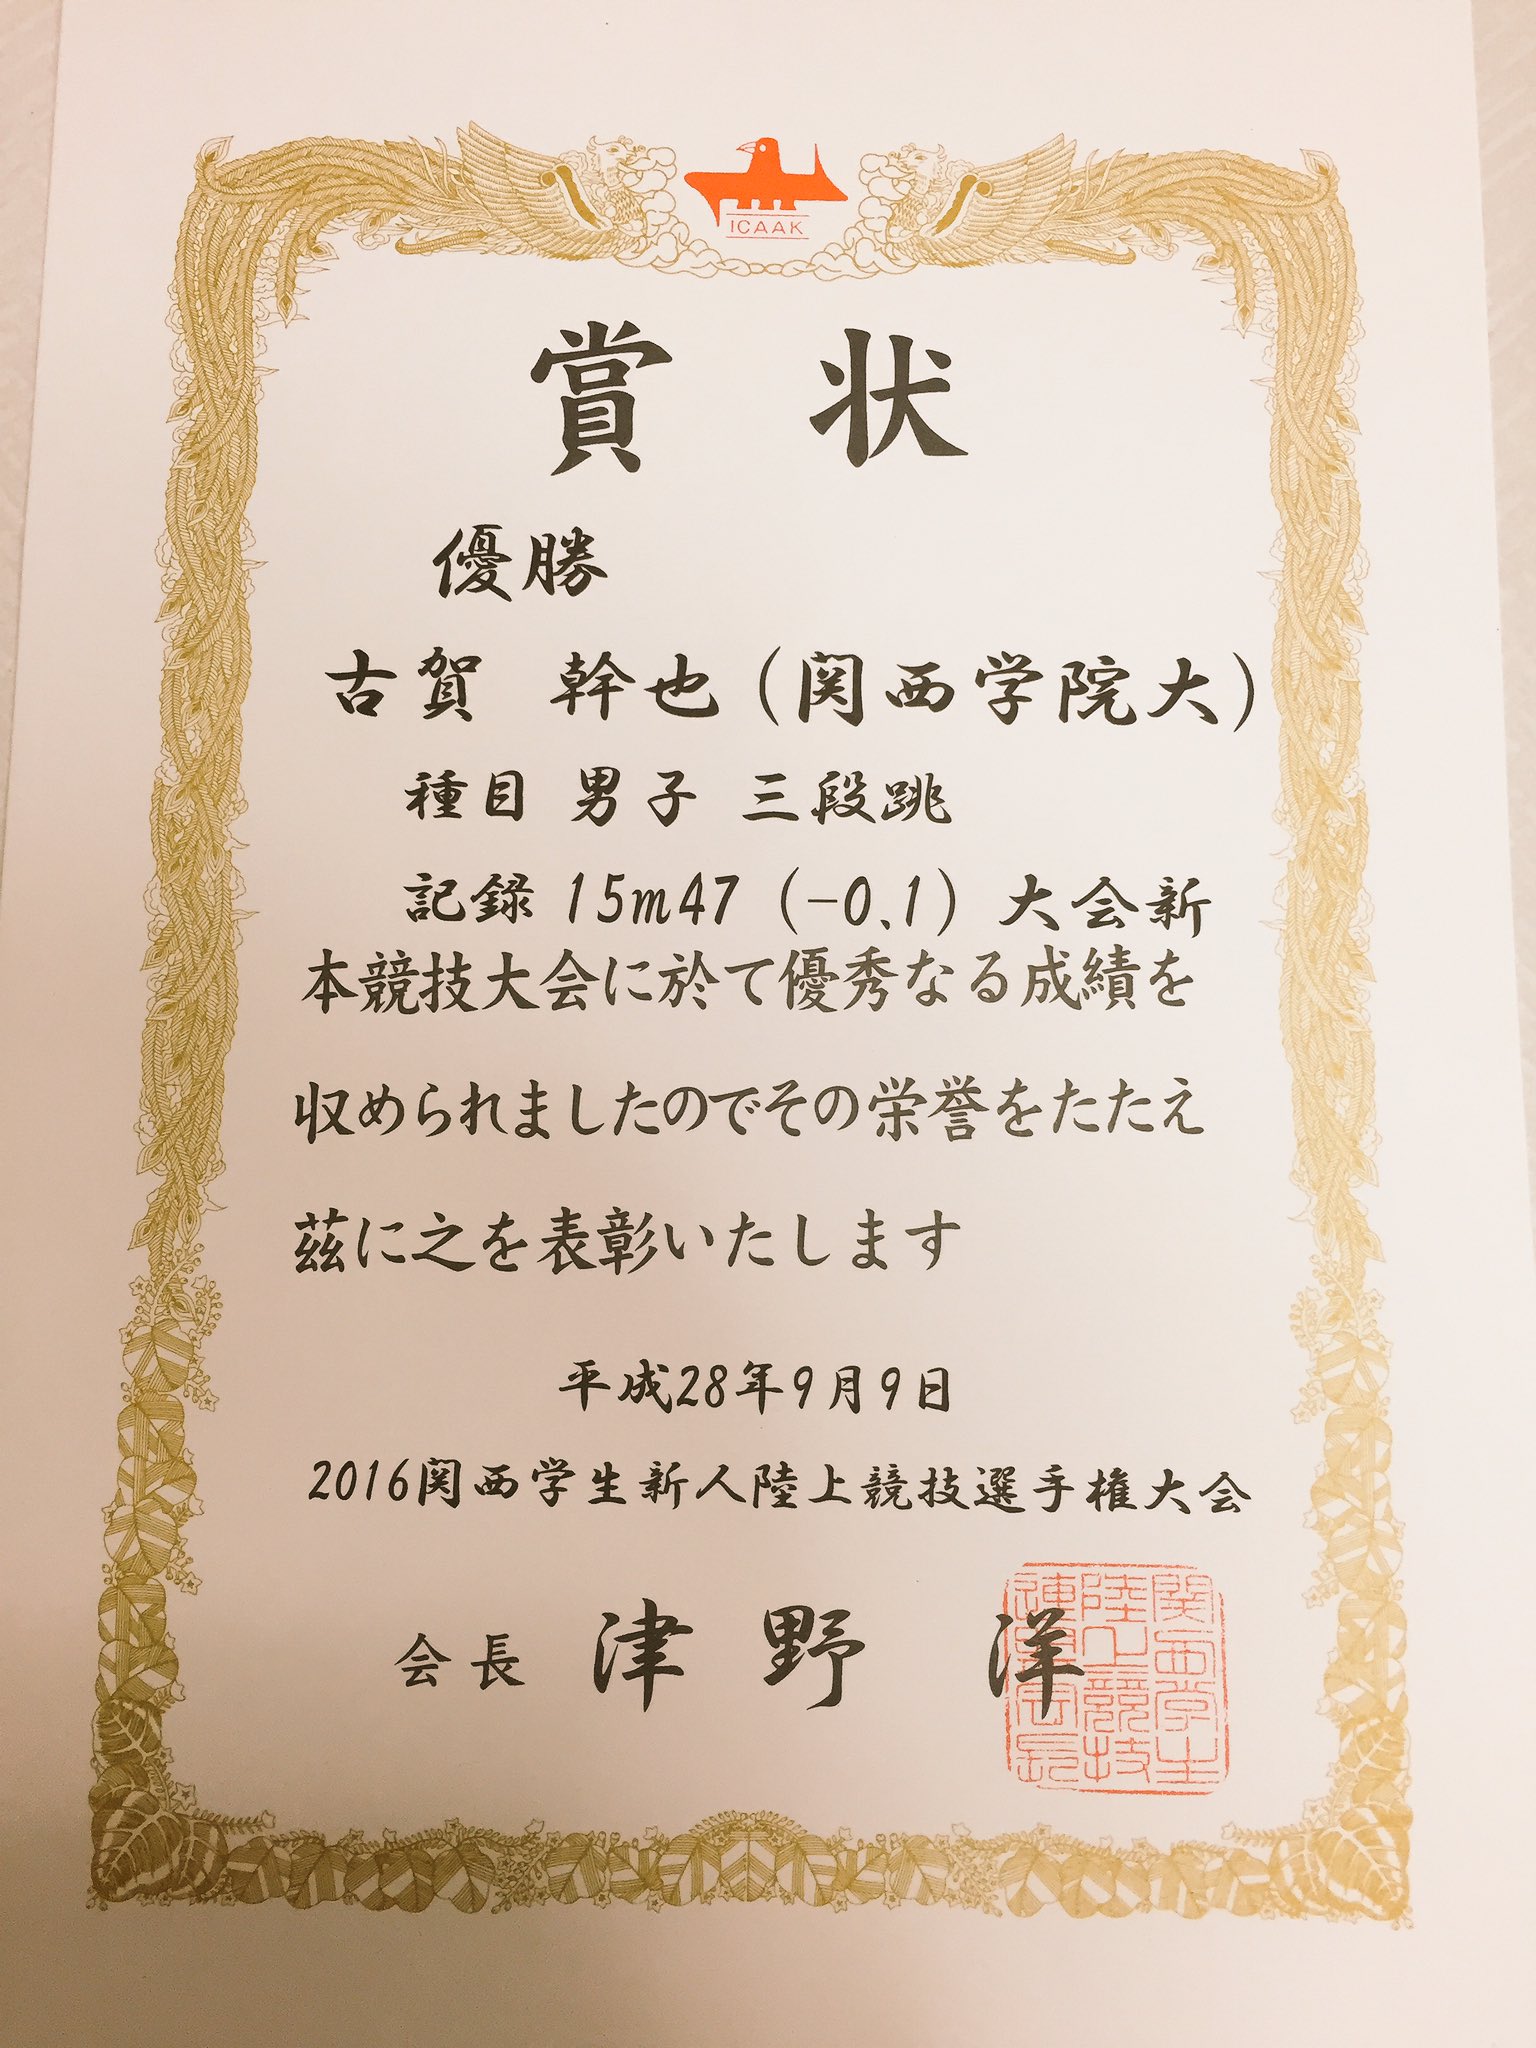 ICAAK
賞 状
優勝
古賀 幹也（関西学院大）
種目 男子 三段跳
記録 15m47 (-0.1) 大会新
本競技大会に於て優秀なる成績を
収められましたのでその栄誉をたたえ
茲に之を表彰いたします
平成28年9月9日
2016関西学生新人陸上競技選手権大会
会長 津野 洋
関西学生
陸上競技
連盟会長